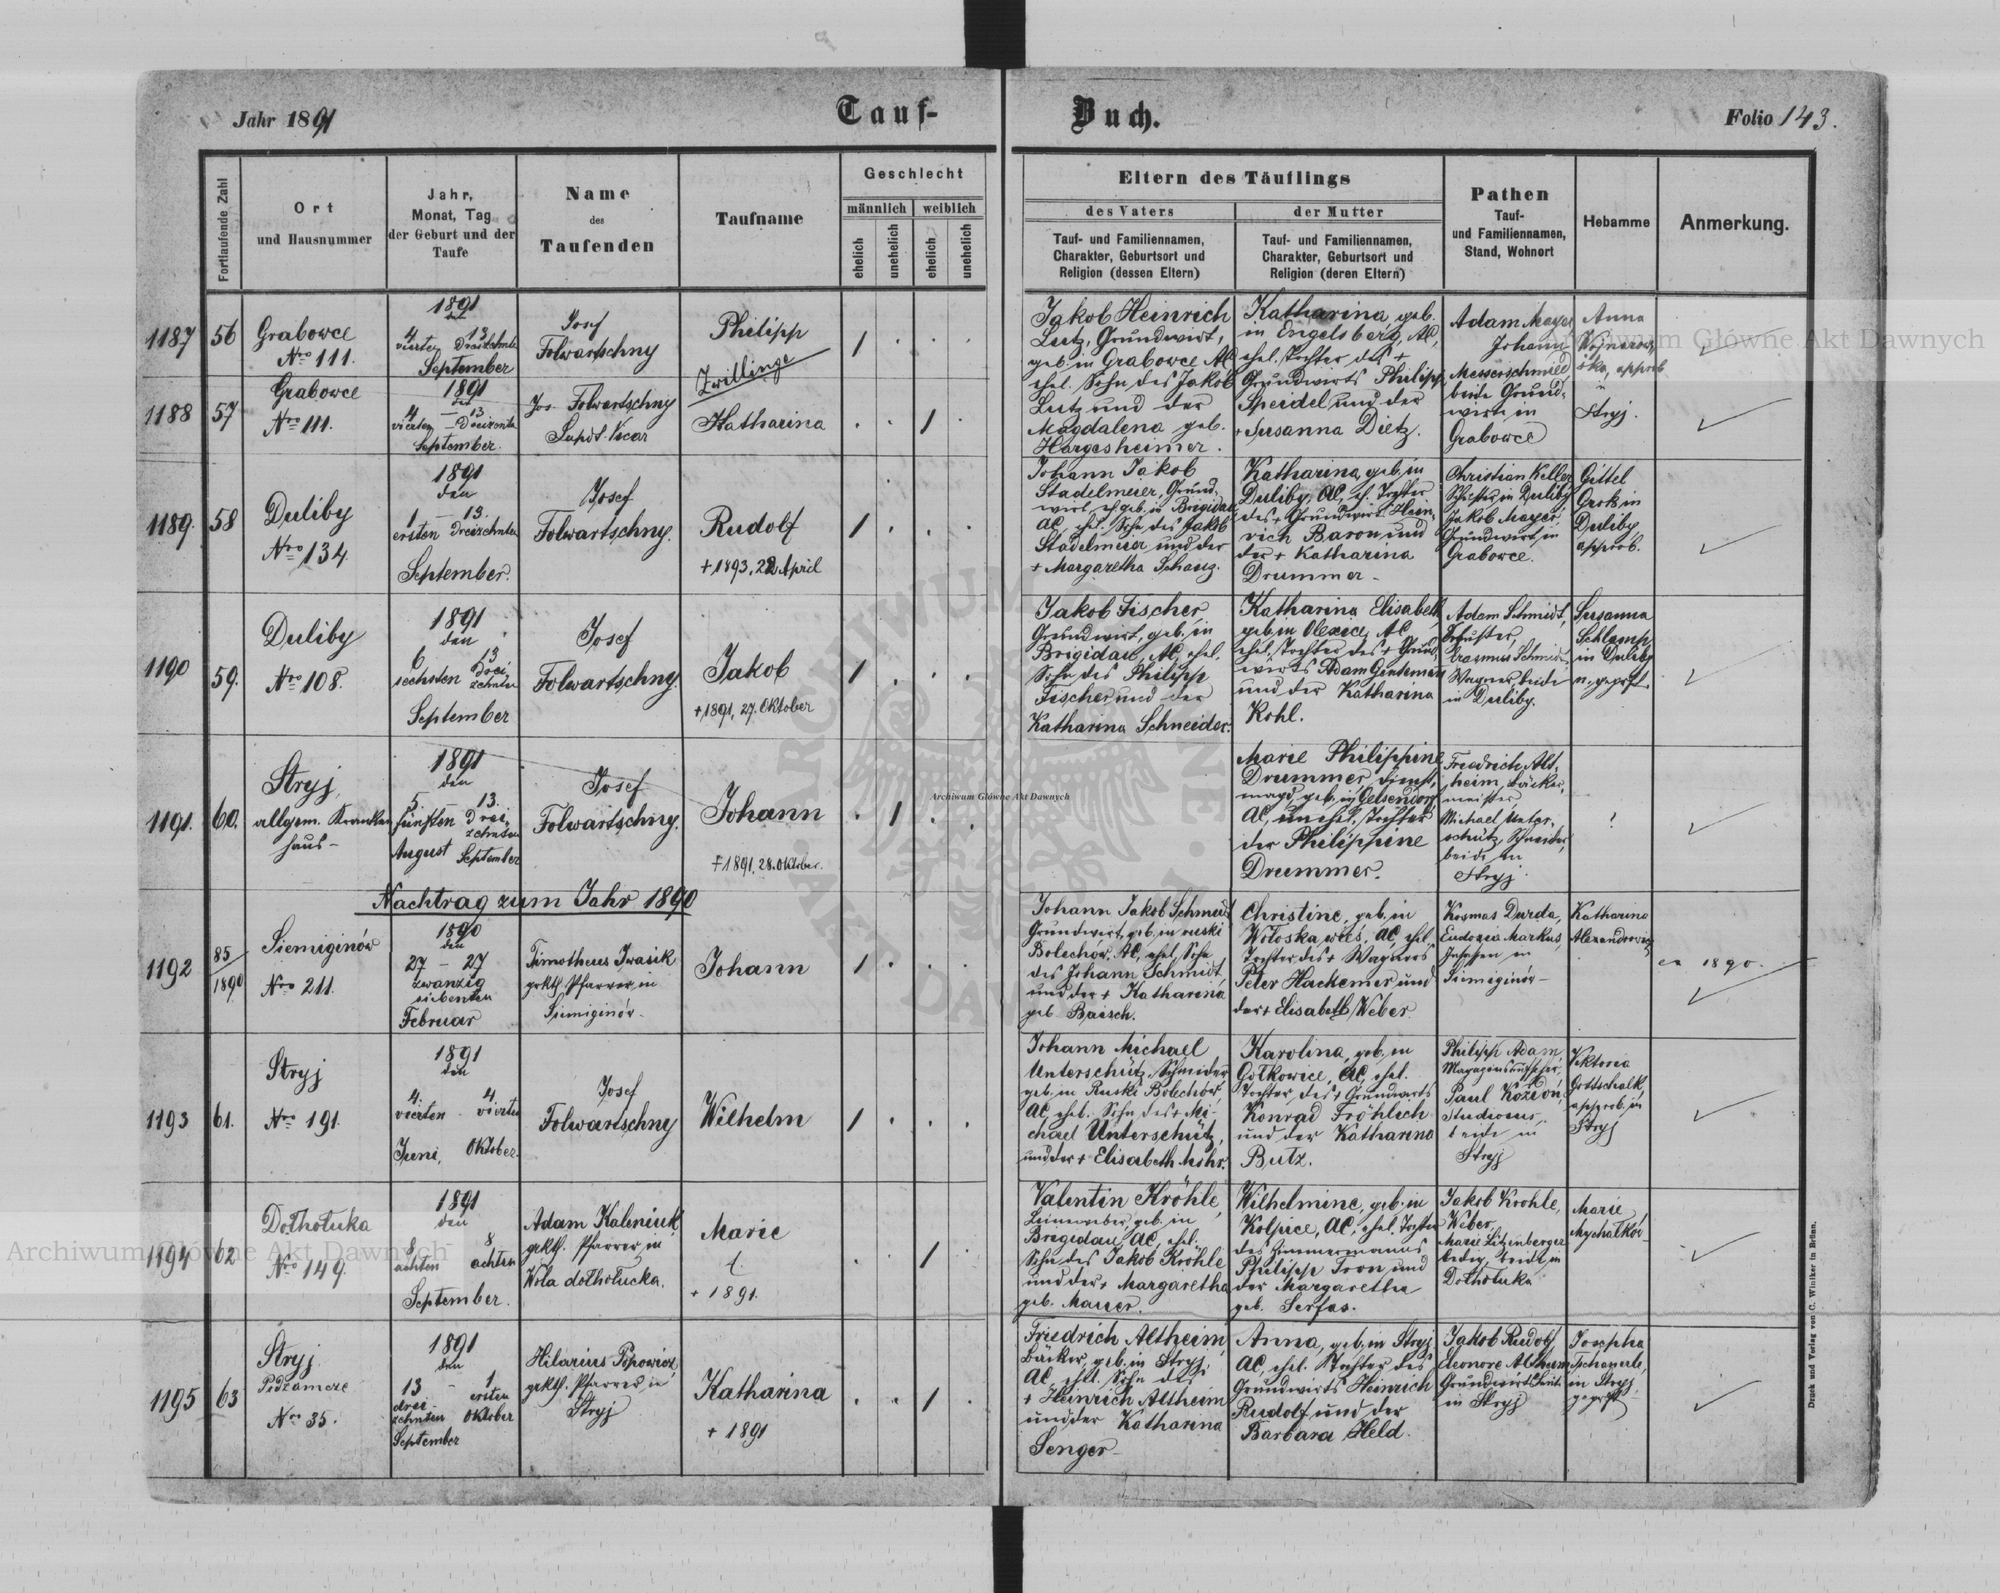 Jahr 1891
Tauf-
Buch.
Folio 143.
Fortlaufende Zahl
Ort
und Hausnummer
Jahr,
Monat, Tag
der Geburt und der
Taufe
Name
des
Taufenden
Taufname
Geschlecht
männlich
weiblich
ehelich
unehelich
ehelich
unehelich
Eltern des Täuflings
des Vaters
Tauf- und Familiennamen,
Charakter, Geburtsort und
Religion (dessen Eltern)
der Mutter
Tauf- und Familiennamen,
Charakter, Geburtsort und
Religion (deren Eltern)
Pathen
Tauf-
und Familiennamen,
Stand, Wohnort
Hebamme
Anmerkung.
1187
56
Grabowce
Nro 111.
1891
den
4 13
vierten Dreizehnten
September
Josef
Folwartschny
Philipp
Zwillinge
Jakob Heinrich
Lutz, Grundwirt,
geb. in Grabowce AC
ehel. Sohn des Jakob
Lutz und der
Magdalena geb.
Hargesheimer.
Katharina geb.
in Engelsberg, AC,
ehel. Tochter des +
Grundwirts Philipp
Speidel und der
+ Susanna Dietz.
Adam Mayer
Johann
Messerschmied
beide Grund-
wirte in
Grabowce
Anna
Stryj.
1188
57
Grabowce
Nro 111.
1891
den
4 - 13
vierten - Dreizehnten
September.
Jos. Folwartschny
Supdt. Vicar
Katharina
1189.
58
Duliby
Nro 134.
1891
den
1 - 13.
ersten Dreizehnten
September.
Josef
Folwartschny.
Rudolf
+ 1893, 22 April
Johann Jakob
Stadelmeier, Grund-
wirt, geb. in Brigidau
AC, ehel. Sohn des Jakob
Stadelmeier und der
+ Margaretha Schanz.
Katharina, geb. in
Duliby, AC, eh. Tochter
des + Grundwirts Hein-
rich Baron und
der + Katharina
Drummer -
Christian Keller
in Duliby
Jakob Mayer,
Grundwirt, in
Grabowce.
Gittel
Grok in
Duliby
approb.
1190
59.
Duliby
Nro 108.
1891
den
6 13
sechsten Drei
zehnten
September
Josef
Folwartschny.
Jakob
+ 1891, 27. Oktober
Jakob Fischer,
Grundwirt, geb. in
Brigidau, AC, ehel.
Sohn des Philipp
Fischer und der
Katharina Schneider.
Katharina Elisabeth
geb. in Olexice, AC
ehel. Tochter des + Grund-
wirts Adam
und der Katharina
Kohl.
Adam Schmidt,
Schmidt
Wagner, beide
in Duliby.
Susanna
Schlamp
in Duliby
n. geprft.
1191.
60.
Stryj,
allgem. Kranken
haus -
1891
den
5. 13.
fünften Drei-
zehnten
August September
Josef
Folwartschny.
Johann
+ 1891, 28. Oktober.
Marie Philippine
Drummer, Dienst-
magd, geb. in Gelsendorf
AC, unehel. Tochter
der Philippine
Drummer.
Friedrich Alt-
heim, Bäcker-
meister,
Michael Unter-
schütz, Schneider,
beide in
Stryj.
?
Nachtrag zum Jahr 1890
1192
85/1890
Siemiginów
Nro 211.
1890
den
27 - 27
zwanzig
siebenten
Februar
Timotheus Iwasik
grkth. Pfarrer in
Siemiginów.
Johann
Johann Jakob Schmidt
Grundwirt, geb. in ruski
Bolechów, AC, ehel. Sohn
des Johann Schmidt
und der + Katharina
geb. Baisch.
Christine, geb. in
Wołoska wieś, AC, ehel.
Tochter des + Wagners
Peter Hachemer und
der + Elisabeth Weber
Kosmas Durda,
Eudoxia Markus,
Insassen in
Siemiginów -
Katharina
Alexandrowicz
ex 1890.
1193
61.
Stryj
Nro 191.
1891
den
4. 4.
vierten vierten
Juni, Oktober.
Josef
Folwartschny
Wilhelm
Johann Michael
Unterschütz, Schneider
geb. in Ruski Bolechów,
AC, ehel. Sohn des + Mi-
chael Unterschütz,
und der + Elisabeth Mohr.
Karolina, geb. in
Gołkowice, AC, ehel.
Tochter, des + Grundwirts
Konrad Fröhlich
und der Katharina
Butz.
Philipp Adam,
Magazinsaufseher,
Paul Kozdoń,
Studiosus,
beide in
Stryj
Viktoria
Gottschalk,
approb. in
Stryj
1194
62
Dołhołuka
Nro 149.
1891
den
8 8
achten achten
September.
Adam Kaleniuk
grkth. Pfarrer in
Wola dołhołucka.
Marie
+ 1891.
Valentin Kröhle,
Leineweber, geb. in
Brigidau, AC, ehel.
Sohn des Jakob Kröhle
und der + Margaretha
geb. Mauer.
Wilhelmine, geb. in
Kolpice, AC, ehel. Tochter
des Zimmermanns
Philipp Tron und
der Margaretha
geb. Serfas.
Jakob Kröhle,
Weber,
Marie Litzenberger
ledig, beide in
Dołhołuka
Marie
1195
63
Stryj,
Podzamcze
Nro 35.
1891
den
13 - 1
drei- ersten
zehnten Oktober
September
Hilarius Popowicz
grkth. Pfarrer in
Stryj
Katharina
+ 1891
Friedrich Altheim,
Bäcker, geb. in Stryj,
AC, ehel. Sohn des
+ Heinrich Altheim
und der Katharina
Senger -
Anna, geb. in Stryj
AC, ehel. Tochter des
Grundwirts Heinrich
Rudolf und der
Barbara Held.
Jakob Rudolf
Eleonore Altheim
Grundwirtsleute
in Stryj
Josepha
in Stryj,
geprft.
Druck und Verlag von C. Winiker in Brünn.
Archiwum Główne Akt Dawnych
Archiwum Główne Akt Dawnych
Archiwum Główne Akt Dawnych